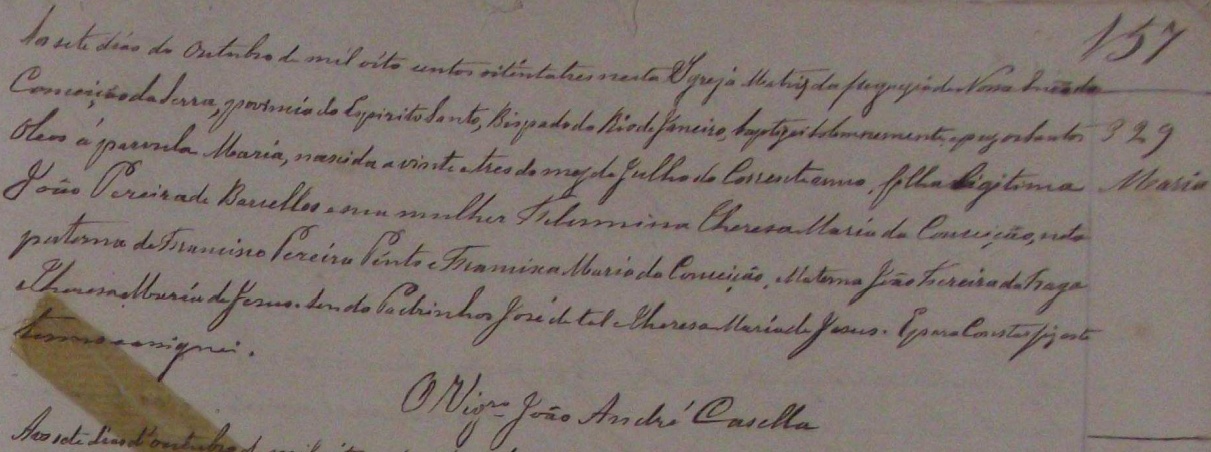 157
Aos sete dias do Outubro de mil oito centos oitenta tres nesta Igreja Matriz da freguezia de Nossa Snra da
Conceição da Serra, provincia do Espirito Santo, Bispado do Rio de Janeiro, baptizei solemnemente, e puz os santos
Oleos á parvula Maria, nascida a vinte e tres do mez de Julho do Corrente anno, filha Legitima
João Pereira de Barcellos e sua mulher Felismina Theresa Maria da Conceição, neta
paterna de Francisco Pereira Pinto e Francisca Maria da Conceição, Materna João Pereira da Fraga
e Theresa Maria de Jesus. Sendo Padrinhos José de tal e Theresa Maria de Jesus. E para Constar fiz este
termo e assignei.
O Vigro João André Casella
329
Maria
Aos sete dias d'outubro de mil oito